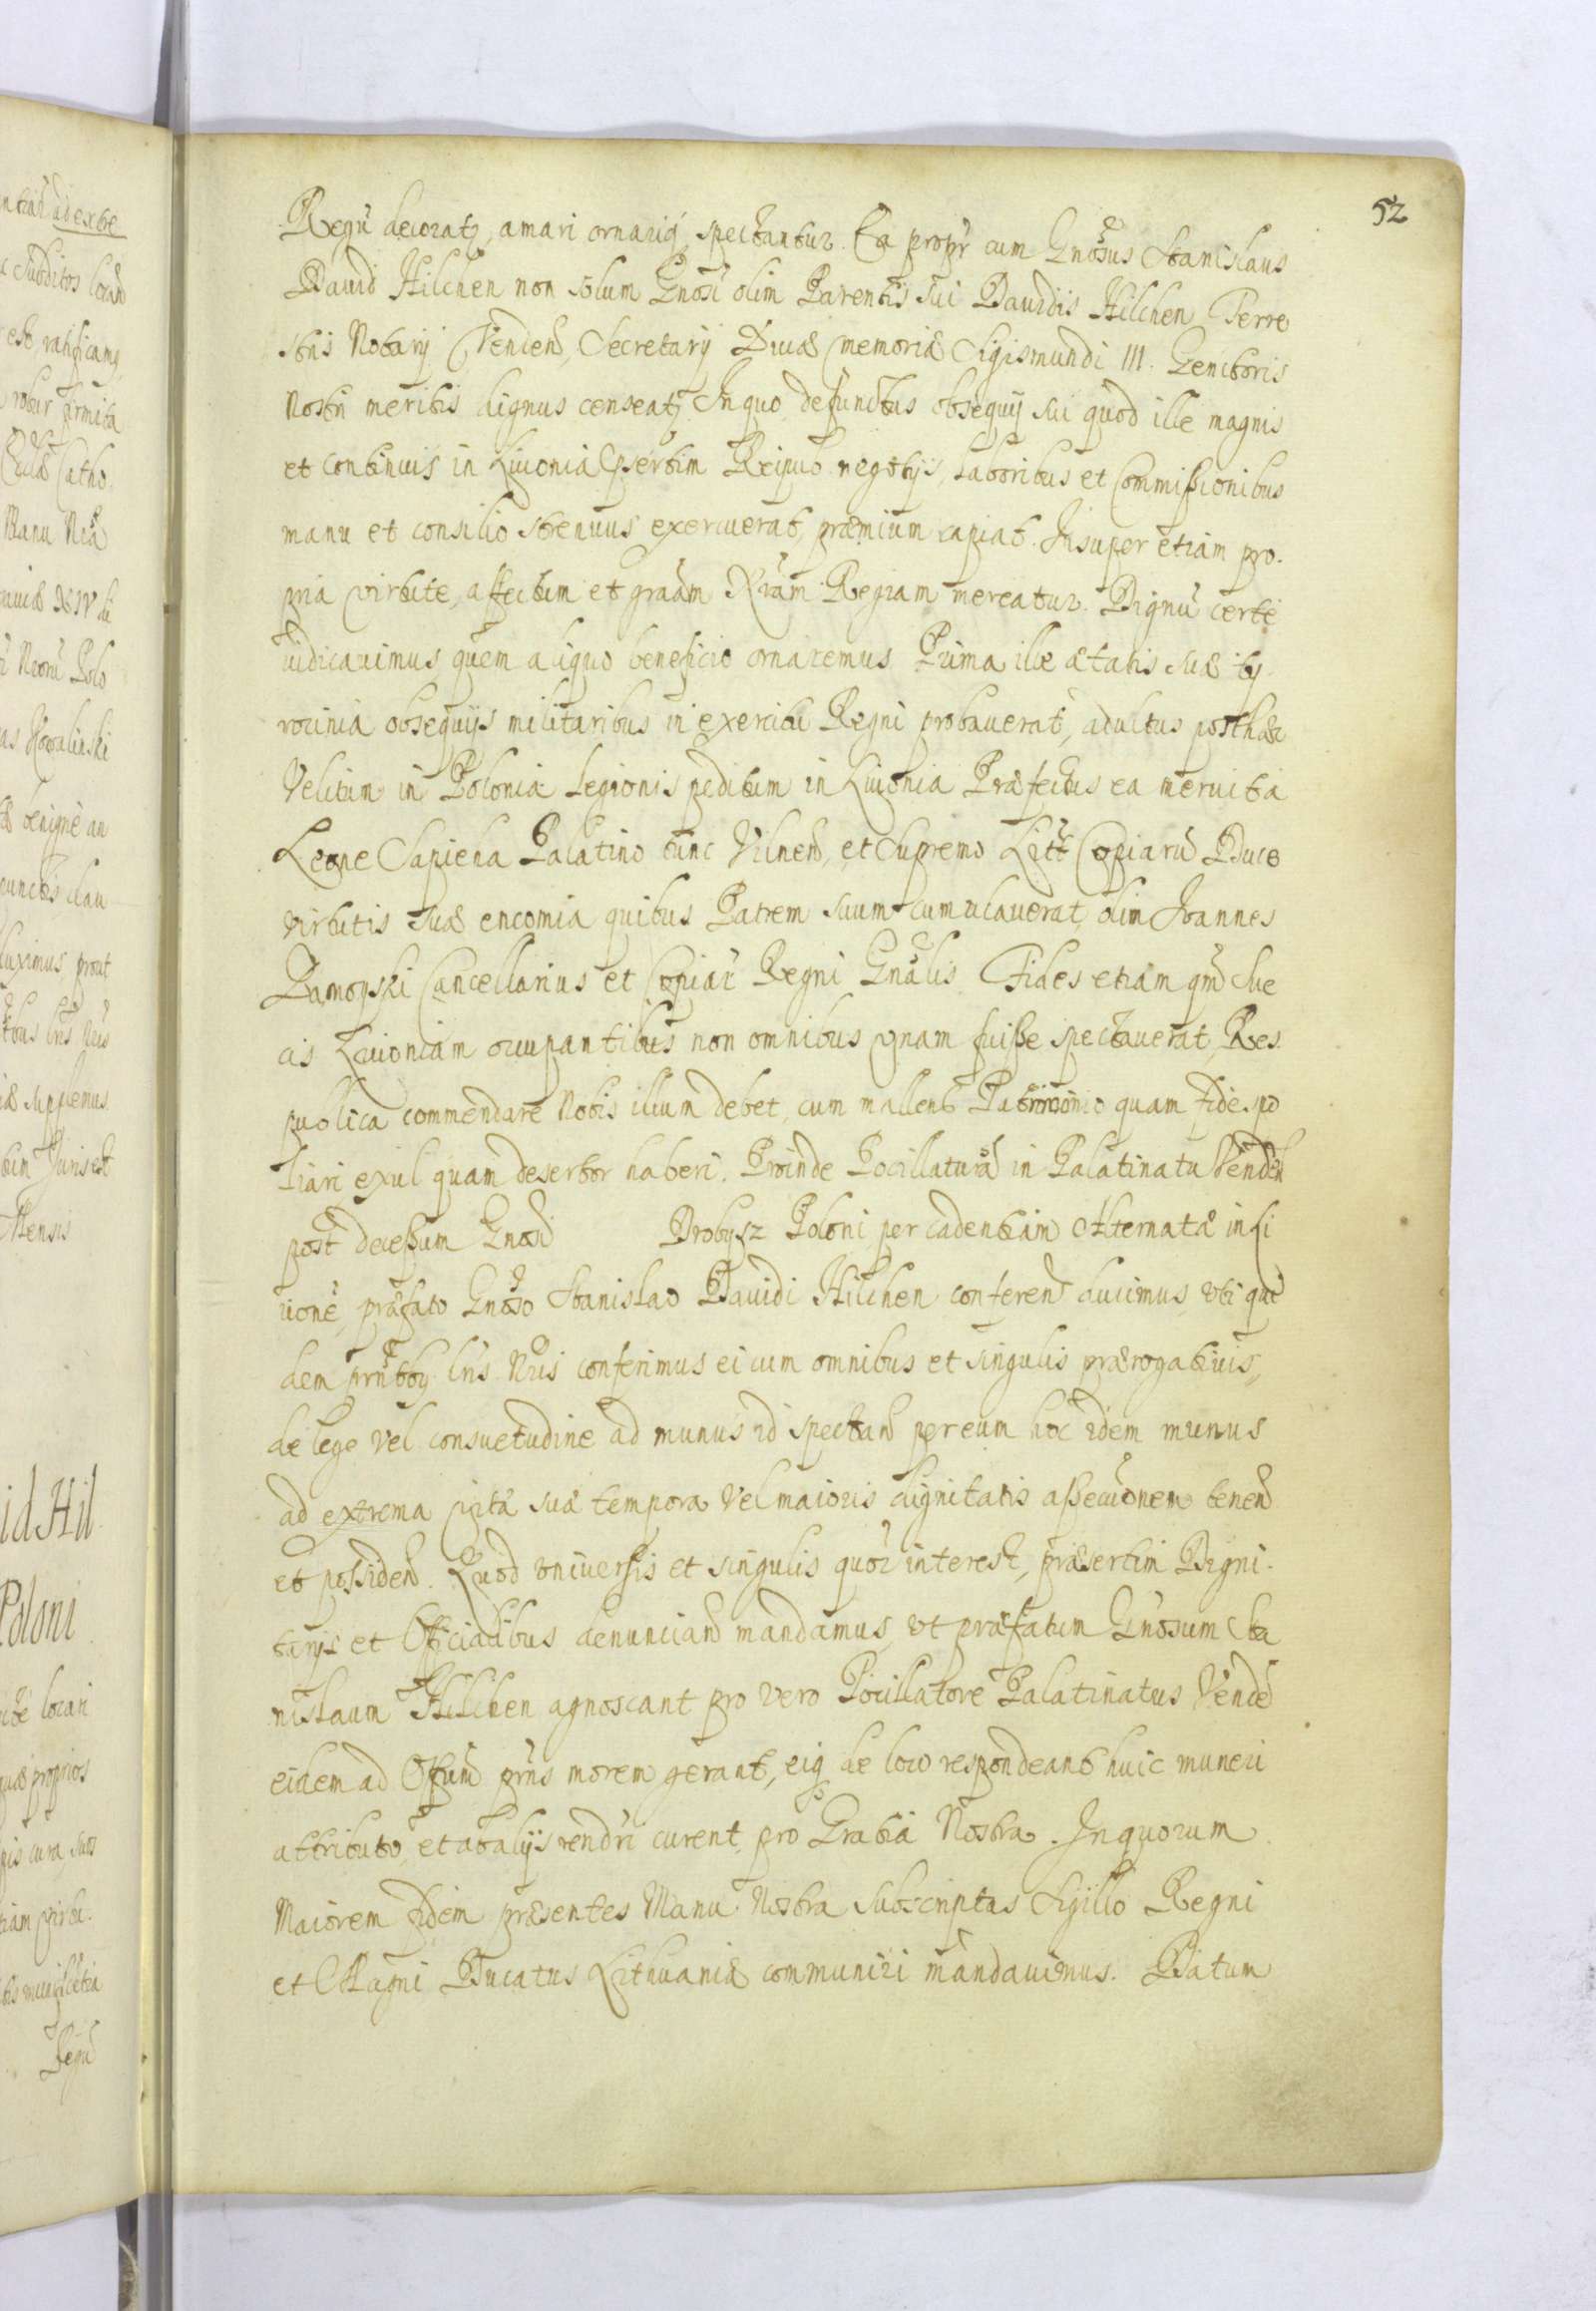 52
Regū decoratꝫ, amari ornariq́ spectantur. Ea propr̄ cum Gnosus Stanislaus
David Hilchen non solum Gnosi olim Parentis sui Davidis Hilchen Terre
stris Notarij Venden̄, Secretarij Divæ memoriæ Sigismundi III. Genitoris
Nostri meritis dignus censeatꝫ In quo defunctus obsequij sui quod ille magnis
et continuis in Livonia Psertim Reipub. negotijs, Laboribus et Commissionibus
manu et consilio strenuus exercuerat, præmium capiat. Insuper etiam pro-
pria virtute, affectum et gratām Nrām Regiam mereatur. Dignū certe
iudicavimus quem aliquo beneficio ornaremus. Prima ille ætatis suæ ty
rocinia obsequijs militaribus in exercitu Regni probaverat, adultus posthæc
Velitum in Polonia Legionis peditum in Livonia Præfectus ea meruit a
Leone Sapieha Palatino tunc Vilnen̄, et Supremo Litt Copiarū Duce
virtutis suæ encomia quibus Patrem suum cumulaverat olim Joannes
Zamoyski Cancellarius et Copiar̄ Regni Gnālis. Fides etiam qm̄ Sue
cis Livoniam occupantibus non omnibus vnam fuisse spectaverat, Res
publica commendare Nobis illum debet, cum mallent Patrimonio quam fide spo
liari exul quam desertor haberi. Proinde Pocillaturā in Palatinatu Venden̄
post decessum Gnosi Drobysz Poloni per cadentiam Alternatæ in Li
vonē, præfato Gnoso Stanislao Davidi Hilchen conferen̄ duximus, vti qui
dem pn̄tibꝫ Lrīs Nrīs conferimus ei cum omnibus et singulis prærogativis,
de lege vel consuetudine ad munus id spectan̄ per eum hoc idem munus
ad extrema vitæ suæ tempora vel maioris dignitatis assecutionem tenen̄
et possiden̄. Quod vniversis et singulis quor̄ interest, præsertim Digni-
tarijs et Officialibus denuncian̄ mandamus, vt præfatum Gnosum Sta
nislaum Hilchen agnoscant pro vero Pocillatore Palatinatus Venden̄
eidem ad Offum pn̄s morem gerant, eiq́ de loco respondeant huic muneri
attributo et ab alijs rendrī curent, pro Gratia Nostra. In quorum
Maiorem fidem præsentes Manu Nostra Subscriptas Sigillo Regni
et Magni Ducatus Lithuaniæ communiri mandavimus. Datum